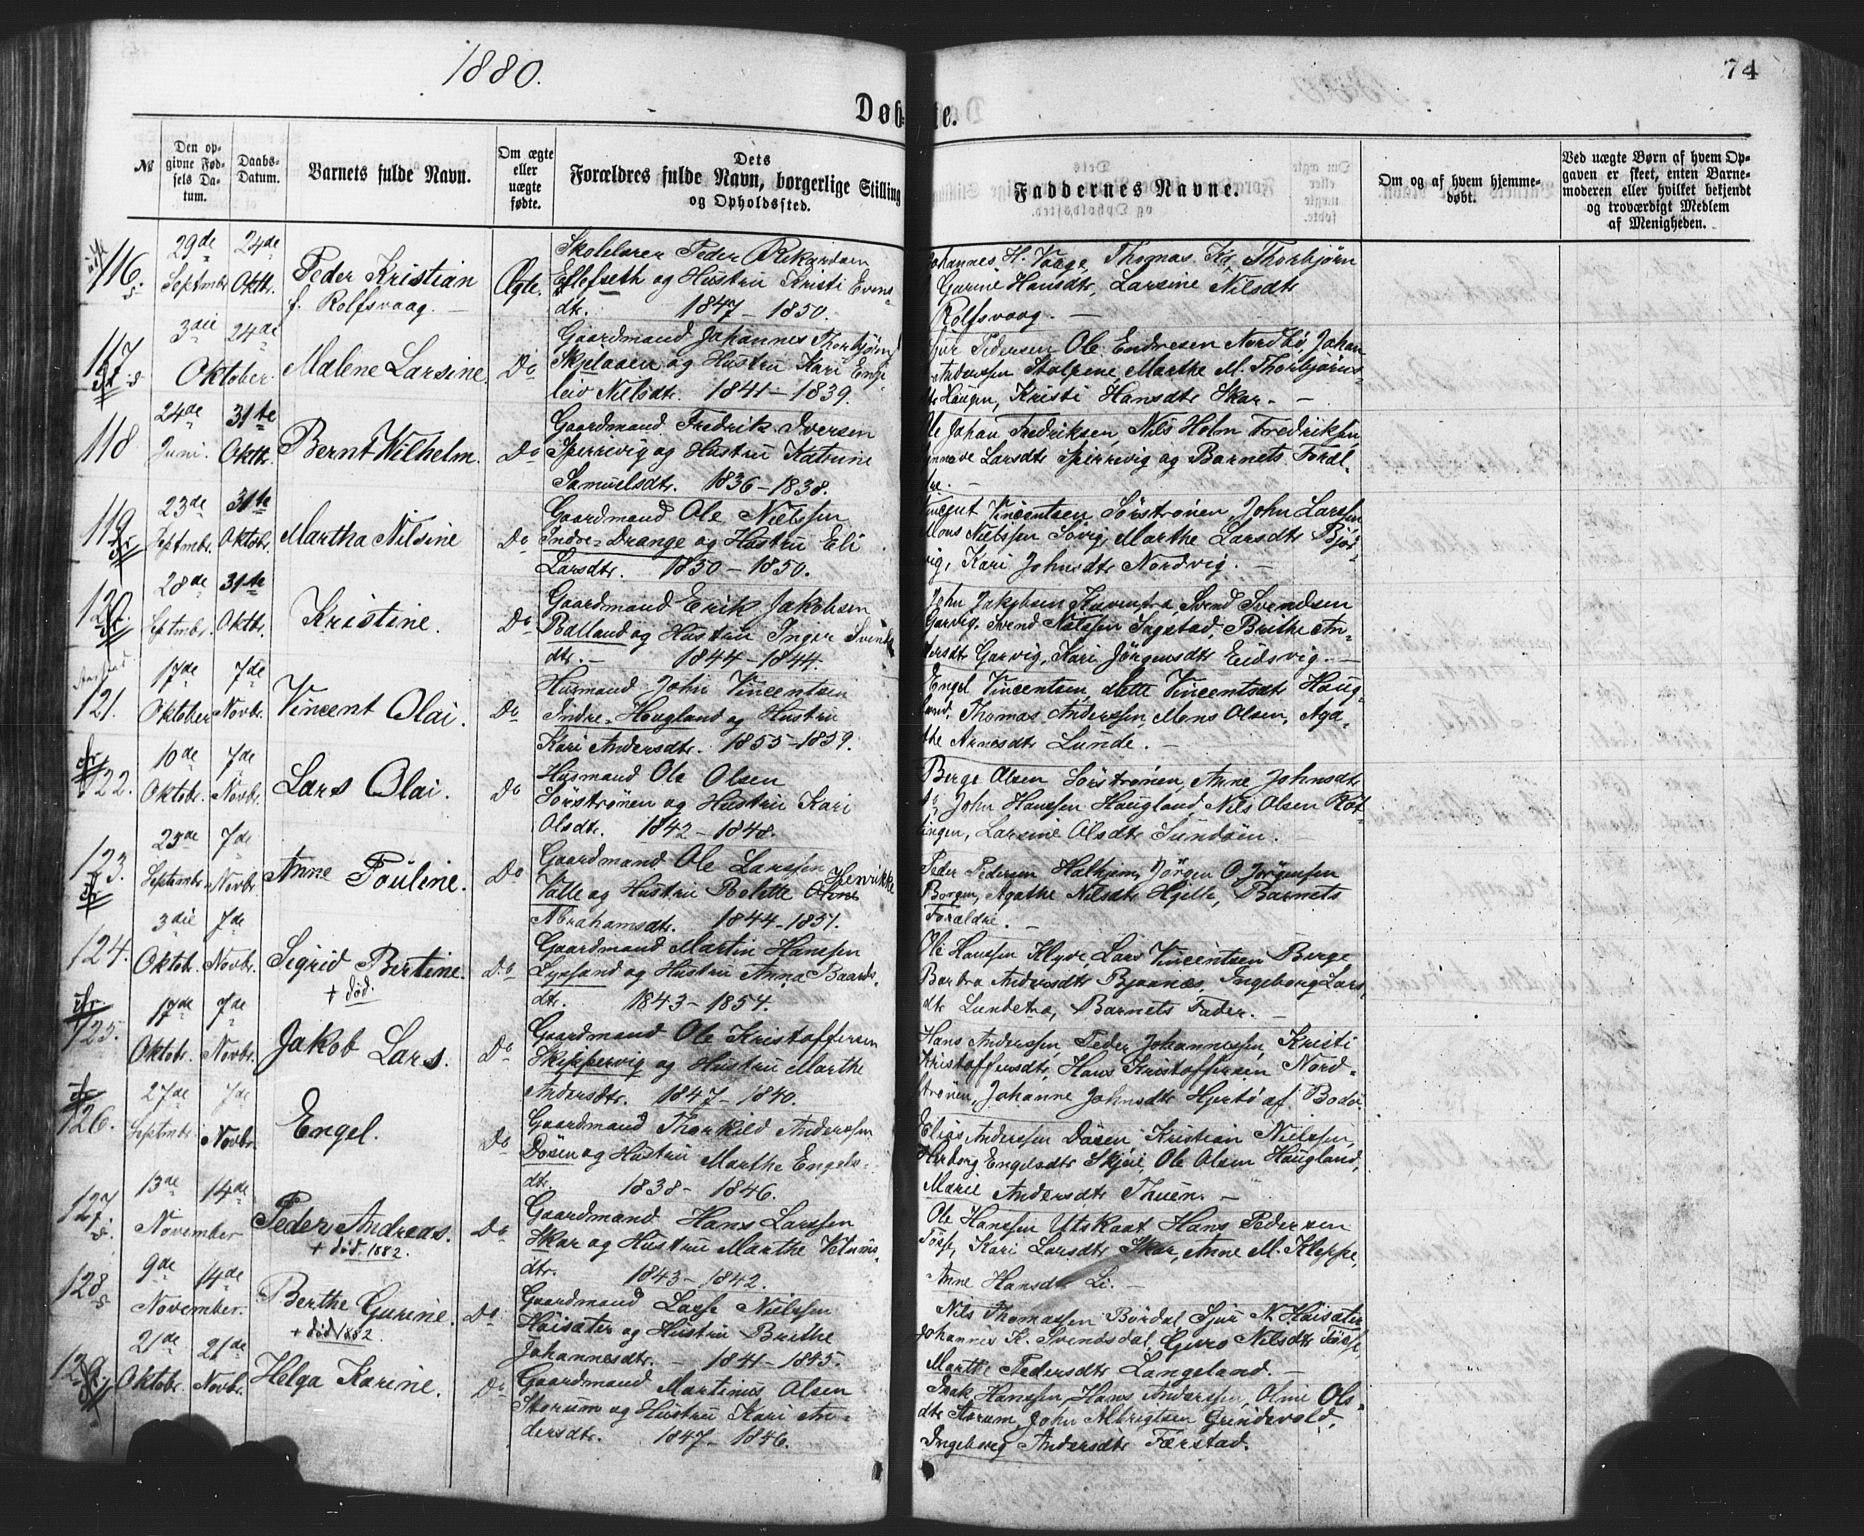 1880.
74
Døbte.
№
Den opgivne Fødsels Datum.
Daabs-Datum.
Barnets fulde Navn.
Om ægte eller uægte fødte.
Dets Forældres fulde Navn, borgerlige Stilling og Opholdssted.
Faddernes Navne.
Om og af hvem hjemmedøbt.
Ved uægte Børn af hvem Opgaven er skeet, enten Barnemoderen eller hvilket bekjendt og troværdigt Medlem af Menigheden.
116.
29de Septmbr
24de Oktbr.
Peder Kristian
f. Rolfsvaag.
Ægte.
Skolelærer Peder Rikardsen
Eflefseth og Hustru Kristi Evens-
dtr. 1847 - 1850.
Johannes H. Vaage, Thomas K., Thorbjørn
Gurine Hansdtr, Larsine Nilsdtr
Rolfsvaag.
117.
3die
24de
Oktober.
Malene Larsine.
Do
Gaardmand Johannes Thorbjørns
Skjelaaen og Hustru Kari Enge-
leiv Nilsdtr. 1841 - 1839.
Sjur Pedersen Ole Endresen Nordbø, Johan
Anderssen Stolpene Marthe M. Thorbjørns-
dtr Haugen, Kristi Hansdtr Skar.
118
24de Juni.
31te Oktbr.
Bernt Wilhelm.
Do
Gaardmand Fredrik Iversen
Sperrevig og Hustru Katrine
Samuelsdtr. 1836 - 1838.
Ole Johan Fredriksen, Nils Holm Fredriksen,
Larsdtr Sperrevig og Barnets Foræl-
dre.
119.
23de Septmbr.
31te Oktobr.
Martha Nilsine
Do
Gaardmand Ole Nielssen
Indre-Drange og Hustru Eli
Larsdtr. 1830 - 1850.
Vincent Vincentsen Sørstrønen, John Larssen
Mons Nielssen Søvig, Marthe Larsdtr Bjør-
vig, Kari Johnsdtr Nordvig.
120.
28de Septmbr.
31te Oktbr.
Kristine.
Do
Gaardmand Erik Jakobsen
Balland og Hustru Inger Svends
dtr. 1844 - 1844.
John Jakobsen Svend Svendsen
Garvig, Svend Nielssen Sagstad, Brithe An-
dersdtr Garvig, Kari Jørgensdtr Eidsvig.
121.
17de Oktober
7de Novbr.
Vincent Olai.
Do
Husmand John Vincentsen
Indre-Hougland og Hustru
Kari Andersdtr. 1855 - 1859.
Engel Vincentsen, Mette Vincentsdtr Houg-
land, Thomas Anderssen, Mons Olsen, Aga-
the Arnesdtr Lunde.
122.
10de Oktobr.
7de Novbr.
Lars Olai.
Do
Husmand Ole Olsen
Sørstrønen og Hustru Kari
Olsdtr. 1842 - 1848.
Berge Olsen Sørstrønen, Anne Johnsdtr
Do, John Hanssen Haugland, Nils Olsen Røt-
tingen, Larsine Olsdtr Sundøen.
123.
23de Septmbr
7de Novbr.
Anne Pouline.
Do
Gaardmand Ole Larssen
Valle og Hustru Bolette Oline Henrikke
Abrahamsdtr. 1844 - 1851.
Peder Pedersen Halhjem, Jørgen O. Jørgensen
Borgen, Agathe Nilsdtr Hjelle, Barnets
Forældre.
124.
3die Oktob.
7de Novbr.
Sigrid Bertine.
+ død.
Do
Gaardmand Martin Hanssen
Lyssand og Hustru Anna Baards
dtr. 1843 - 1854.
Ole Hanssen Klyve Lars Vincentsen Berge
Barbra Andersdtr Bjaanes, Ingeborg Lars-
dtr Lundetræ, Barnets Fader.
125.
17de Oktobr.
7de Novbr.
Jakob Lars.
Do
Gaardmand Ole Kristoffersen
Skippervig og Hustru Marthe
Andersdtr. 1847 - 1840.
Hans Anderssen, Peder Johannessen, Kristi
Kristoffersdtr, Hans Kristoffersen Nord-
strønen, Johanne Johnsdtr Hjertø af Bodø.
126.
27de Septmbr
7de Novbr
Engel.
Do
Gaardmand Thorkild Anderssen
Døsen og Hustru Marthe Engels-
dtr. 1838 - 1846.
Elias Anderssen Døsen, Kristian Nielssen,
Herborg Engelsdtr Skjeie, Ole Olsen Haugland,
Marie Andersdtr Thuen.
127.
13de
14de
November
Peder Andreas.
+ død. 1882.
Do
Gaardmand Hans Larssen
Skar og Hustru Marthe
dtr. 1843 - 1842.
Ole Hanssen Utskaat Hans Pedersen
Tøsse, Kari Larsdtr Skar, Anne M. Kleppe,
Anne Hansdtr Li.
128
9de
14de
November.
Berthe Gurine.
+ død 1882.
Do
Gaardmand Lasse Nielssen
Hoisæter og Hustru Birthe
Johannesdtr. - 1841 - 1845.
Nils Thomassen Børdal, Sjur N. Hoisæter
Johannes K. Svendsdal, Guro Nilsdtr Tøsse
Marthe Pedersdtr Langeland.
129.
21de Oktobr.
21de Novbr.
Helga Karine.
Do
Gaardmand Martinus Olsen
Storum og Hustru Kari An-
dersdtr. 1847 - 1846.
Isak Hanssen, Hans Anderssen, Oline Ols-
dtr Storum, John Albrigtsen Grindevold,
Ingeborg Andersdtr Færstad.